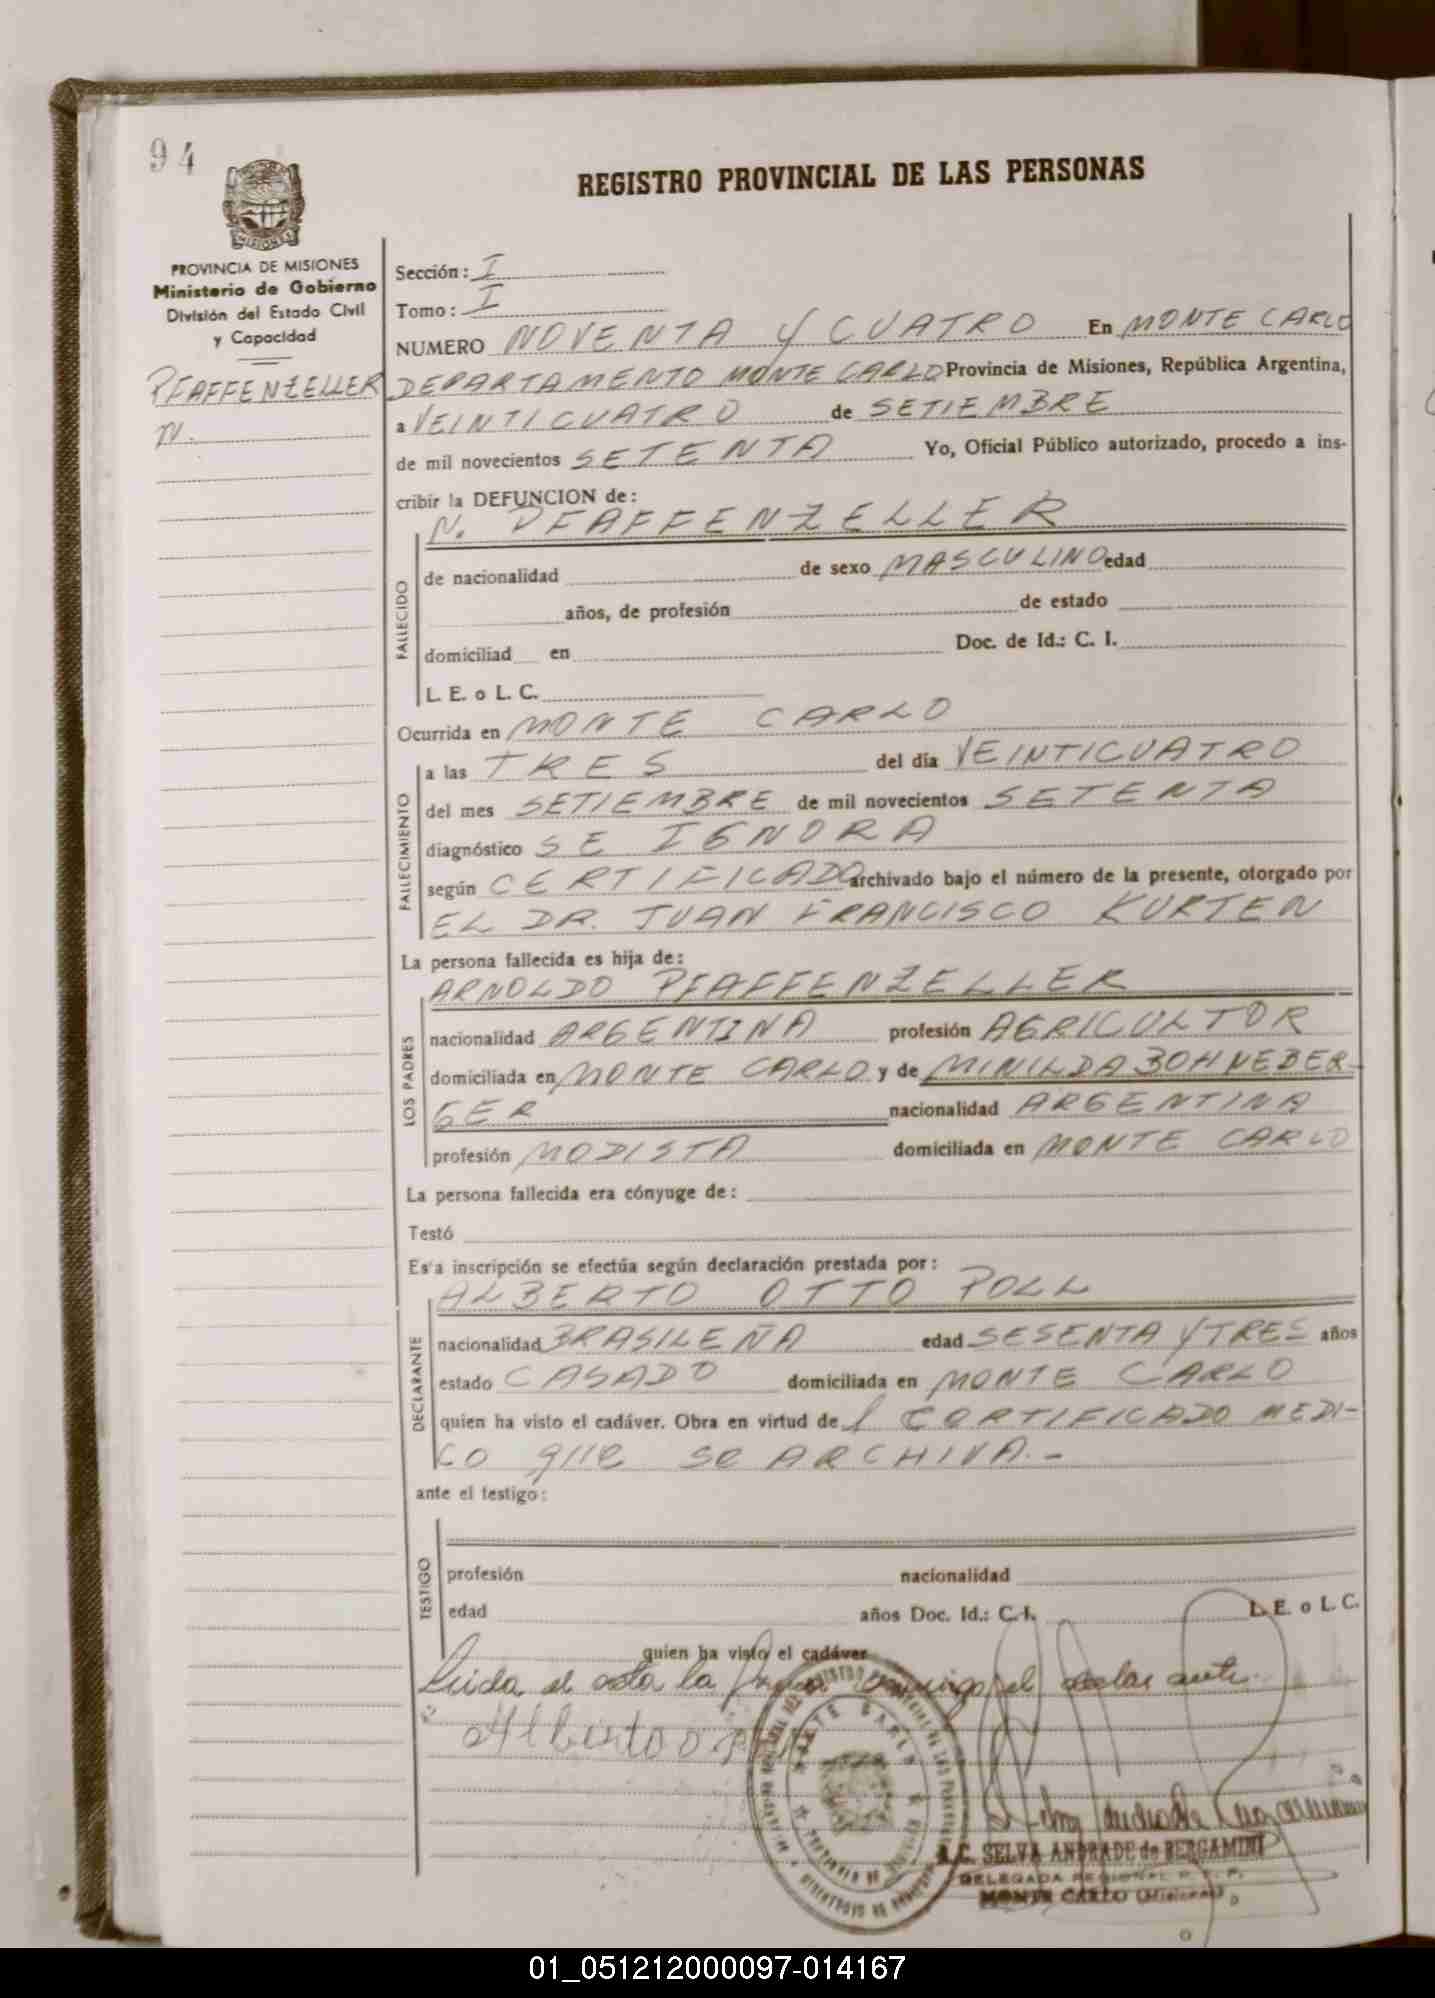 94
MISIONES
REGISTRO PROVINCIAL DE LAS PERSONAS
PROVINCIA DE MISIONES
Ministerio de Gobierno
División del Estado Civil
y Capacidad
PFAFFENZELLER
N.
Sección: I
Tomo: I
NUMERO NOVENTA Y CUATRO En MONTE CARLO
DEPARTAMENTO MONTE CARLO Provincia de Misiones, República Argentina,
a VEINTICUATRO de SETIEMBRE
de mil novecientos SETENTA Yo, Oficial Público autorizado, procedo a ins-
cribir la DEFUNCION de:
N. PFAFFENZELLER
FALLECIDO
de nacionalidad de sexo MASCULINO edad
años, de profesión de estado
domiciliad en Doc. de Id.: C. I.
L. E. o L. C.
Ocurrida en MONTE CARLO
FALLECIMIENTO
a las TRES del día VEINTICUATRO
del mes SETIEMBRE de mil novecientos SETENTA
diagnóstico SE IGNORA
según CERTIFICADO archivado bajo el número de la presente, otorgado por
EL DR. JUAN FRANCISCO KURTEN
La persona fallecida es hija de:
LOS PADRES
ARNOLDO PFAFFENZELLER
nacionalidad ARGENTINA profesión AGRICULTOR
domiciliada en MONTE CARLO y de MINILDA BOHNEBER-
GER nacionalidad ARGENTINA
profesión MODISTA domiciliada en MONTE CARLO
La persona fallecida era cónyuge de:
Testó
Esta inscripción se efectúa según declaración prestada por:
DECLARANTE
ALBERTO OTTO POLL
nacionalidad BRASILEÑA edad SESENTA Y TRES años
estado CASADO domiciliada en MONTE CARLO
quien ha visto el cadáver. Obra en virtud del CERTIFICADO MEDI-
CO que se ARCHIVA.-
ante el testigo:
TESTIGO
profesión nacionalidad
edad años Doc. Id.: C. I. L. E. o L. C.
quien ha visto el cadáver
Leida el acta la firma conmigo el declarante.
Alberto O.
MONTE CARLO
SELVA ANDRADE de BERGAMINI
DELEGADA REGIONAL R. P. P.
MONTE CARLO (Misiones)
01_051212000097-014167